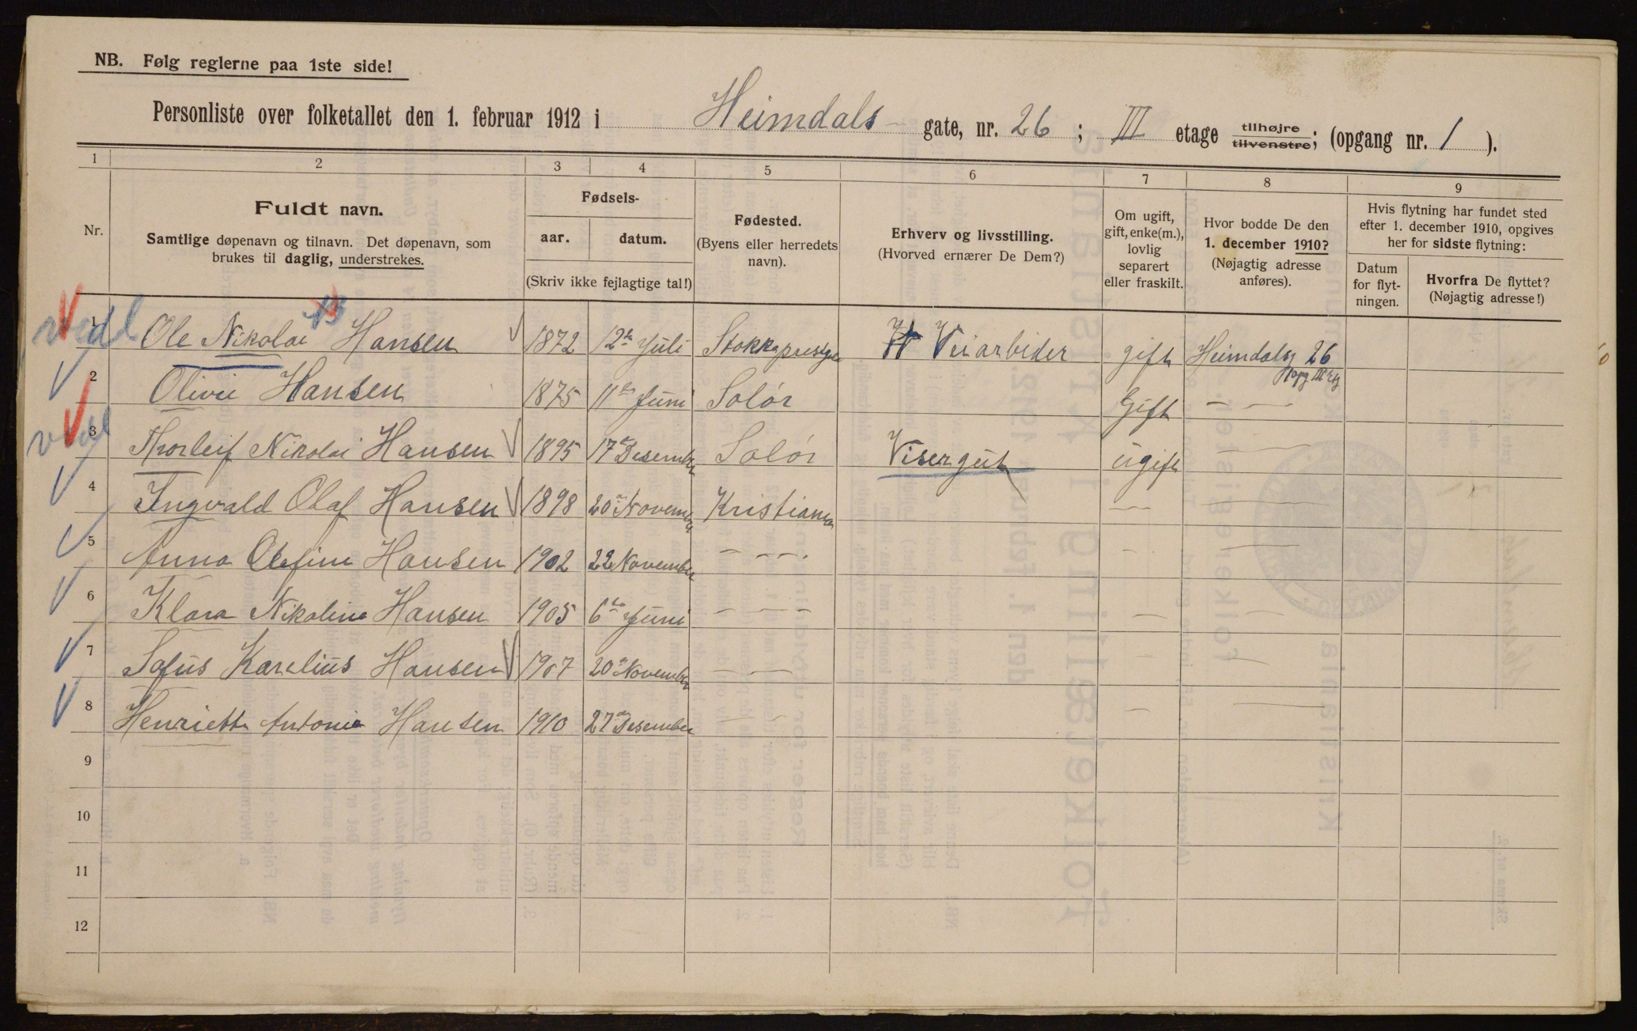 NB. Følg reglerne paa 1ste side!
Personliste over folketallet den 1. februar 1912 i Heimdals gate, nr. 26 ; III etage tilhøjre tilvenstre; (opgang nr. 1 ).
1 2 3 4 5 6 7 8 9
Nr.
Fuldt navn.
Samtlige døpenavn og tilnavn. Det døpenavn, som
brukes til daglig, understrekes.
Fødsels-
aar. datum.
(Skriv ikke fejlagtige tal!)
Fødested.
(Byens eller herredets
navn).
Erhverv og livsstilling.
(Hvorved ernærer De Dem?)
Om ugift,
gift, enke(m.),
lovlig
separert
eller fraskilt.
Hvor bodde De den
1. december 1910?
(Nøjagtig adresse
anføres).
Hvis flytning har fundet sted
efter 1. december 1910, opgives
her for sidste flytning:
Datum
for flyt-
ningen.
Hvorfra De flyttet?
(Nøjagtig adresse!)
13
1 Ole Nikolai Hansen 1872 12te Juli Veiarbeider gift Heimdalsg 26
2 Olivie Hansen 1875 11te Juni Solør Gift — —
3 Thorleif Nikolai Hansen 1895 17 Desember Solør Visergut ugift —
4 Ingvald Olaf Hansen 1898 20 November Kristiania — —
5 Anna Olefine Hansen 1902 22 November — — — —
6 Klara Nikoline Hansen 1905 6te Juni — — — —
7 Sofus Karelius Hansen 1907 20 November — — — —
8 Henriette Antonie Hansen 1910 27 Desember — — — —
9
10
11
12